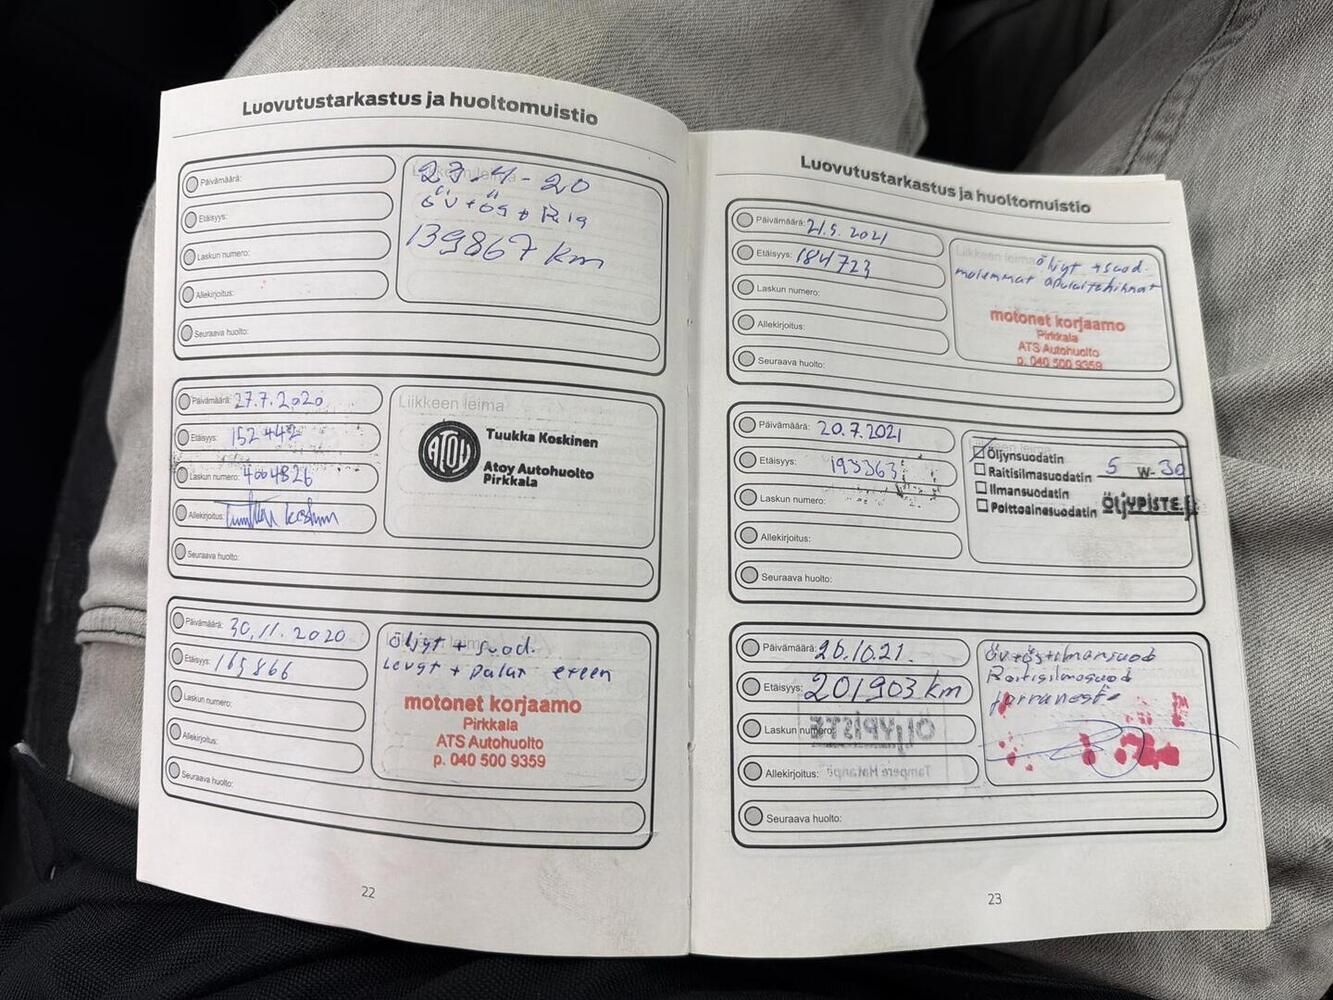 Luovutustarkastus ja huoltomuistio
Päivämäärä:
Etäisyys:
Laskun numero:
Allekirjoitus:
Seuraava huolto:
29-4-20
öv+ös+Ris
139867 km
Päivämäärä: 27.7.2020
Etäisyys: 152442
Laskun numero: 4004826
Allekirjoitus:
Seuraava huolto:
Liikkeen leima
ATOY
Tuukka Koskinen
Atoy Autohuolto
Pirkkala
Päivämäärä: 30.11.2020
Etäisyys: 165866
Laskun numero:
Allekirjoitus:
Seuraava huolto:
öljyt + suod.
Levyt + palat eteen
motonet korjaamo
Pirkkala
ATS Autohuolto
p. 040 500 9359
22
Luovutustarkastus ja huoltomuistio
Päivämäärä: 21.5.2021
Etäisyys: 184723
Laskun numero:
Allekirjoitus:
Seuraava huolto:
Liikkeen leima
öljyt + suod.
molemmat apulaitehihnat
motonet korjaamo
Pirkkala
ATS Autohuolto
p. 040 500 9359
Päivämäärä: 20.7.2021
Etäisyys: 193363
Laskun numero:
Allekirjoitus:
Seuraava huolto:
Öljynsuodatin
Raitisilmasuodatin 5 W-30
Ilmansuodatin
Polttoainesuodatin ÖljYPISTE.fi
Päivämäärä: 26.10.21.
Etäisyys: 201903 km
Laskun numero:
Allekirjoitus:
Seuraava huolto:
öv+ös+ilmansuod
Raitisilmasuod
jarruneste
23